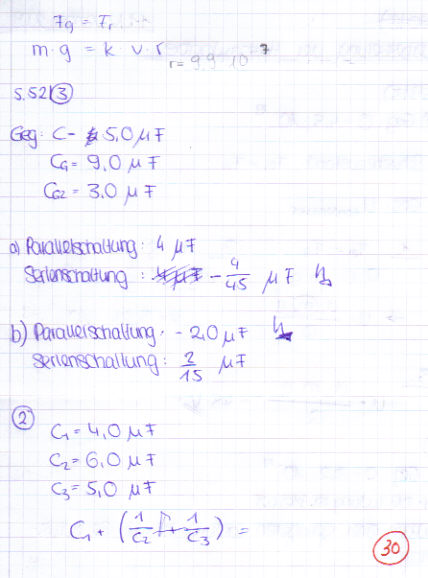 Fg = Fr
m · g = k · v · r
r = 9,9 · 10⁷
S. 52 ③
Geg: C = 5,0 µF
CG1 = 9,0 µF
CG2 = 3,0 µF
a) Parallelschaltung: 4 µF
Serienschaltung: - 4/45 µF
b) Parallelschaltung: - 2,0 µF
Serienschaltung: 2/15 µF
②
C1 = 4,0 µF
C2 = 6,0 µF
C3 = 5,0 µF
C1 + (1/C2 + 1/C3) =
30